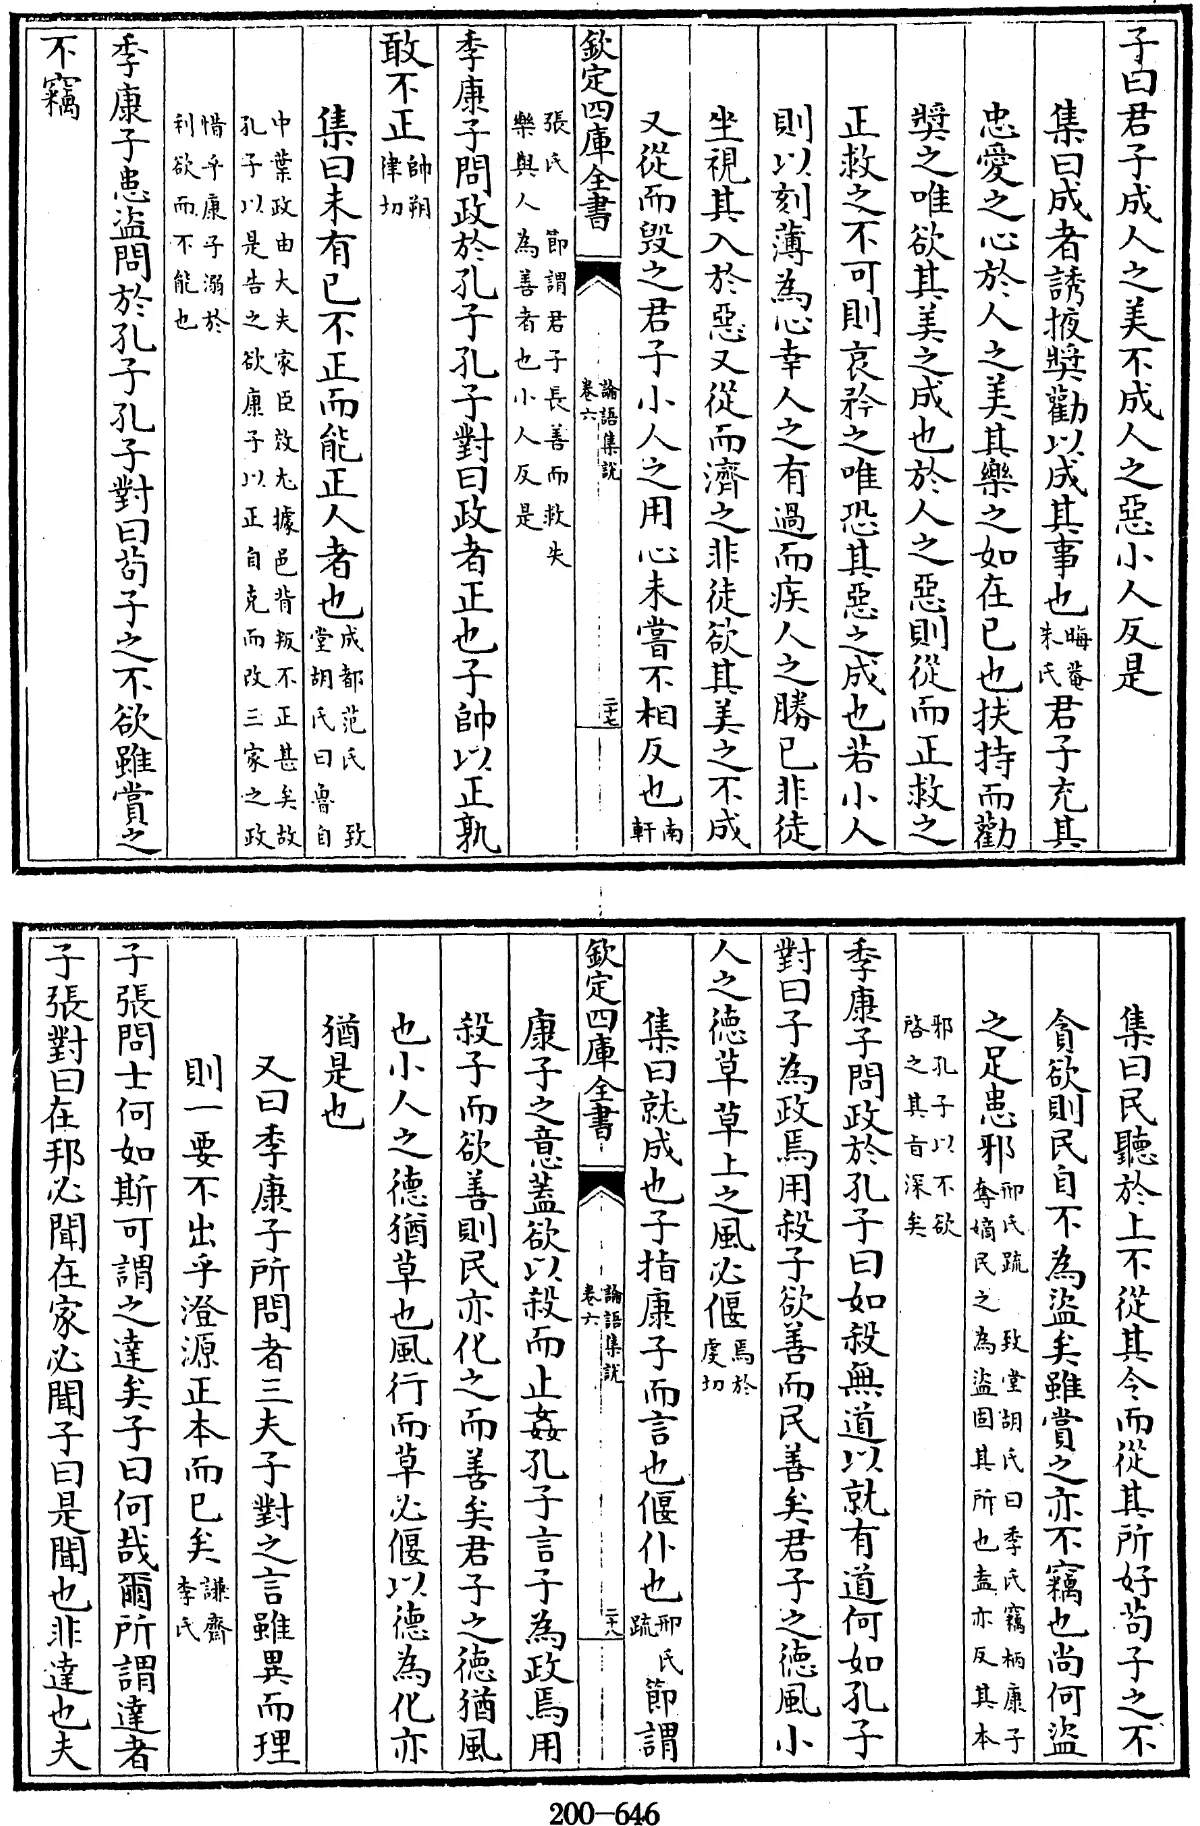 子曰君子成人之美不成人之惡小人反是
集曰成者誘掖奬勸以成其事也晦菴朱氏君子充其
忠愛之心於人之美其樂之如在已也扶持而勸
奬之唯欲其美之成也於人之惡則從而正救之
正救之不可則哀矜之唯恐其惡之成也若小人
則以刻薄為心幸人之有過而疾人之勝已非徒
坐視其入於惡又從而濟之非徒欲其美之不成
又從而毀之君子小人之用心未嘗不相反也南軒
欽定四庫全書 論語集説 卷六 二十七
張氏 節謂君子長善而救失樂與人為善者也小人反是
季康子問政於孔子孔子對曰政者正也子帥以正孰
敢不正帥朔律切
集曰未有已不正而能正人者也成都范氏 致堂胡氏曰魯自
中葉政由大夫家臣效尤據邑背叛不正甚矣故孔子以是告之欲康子以正自克而改三家之政
惜乎康子溺於利欲而不能也
季康子患盜問於孔子孔子對曰苟子之不欲雖賞之
不竊
集曰民聽於上不從其令而從其所好苟子之不
貪欲則民自不為盜矣雖賞之亦不竊也尚何盜
之足患邪邢氏疏 致堂胡氏曰季氏竊柄康子奪嫡民之為盜固其所也盍亦反其本
邪孔子以不欲啓之其旨深矣
季康子問政於孔子曰如殺無道以就有道何如孔子
對曰子為政焉用殺子欲善而民善矣君子之德風小
人之德草草上之風必偃焉於虔切
集曰就成也子指康子而言也偃仆也邢氏疏 節謂
欽定四庫全書 論語集説 卷六 二十八
康子之意蓋欲以殺而止姦孔子言子為政焉用
殺子而欲善則民亦化之而善矣君子之德猶風
也小人之德猶草也風行而草必偃以德為化亦
猶是也
又曰季康子所問者三夫子對之言雖異而理
則一要不出乎澄源正本而已矣謙齋李氏
子張問士何如斯可謂之達矣子曰何哉爾所謂達者
子張對曰在邦必聞在家必聞子曰是聞也非達也夫
200-646